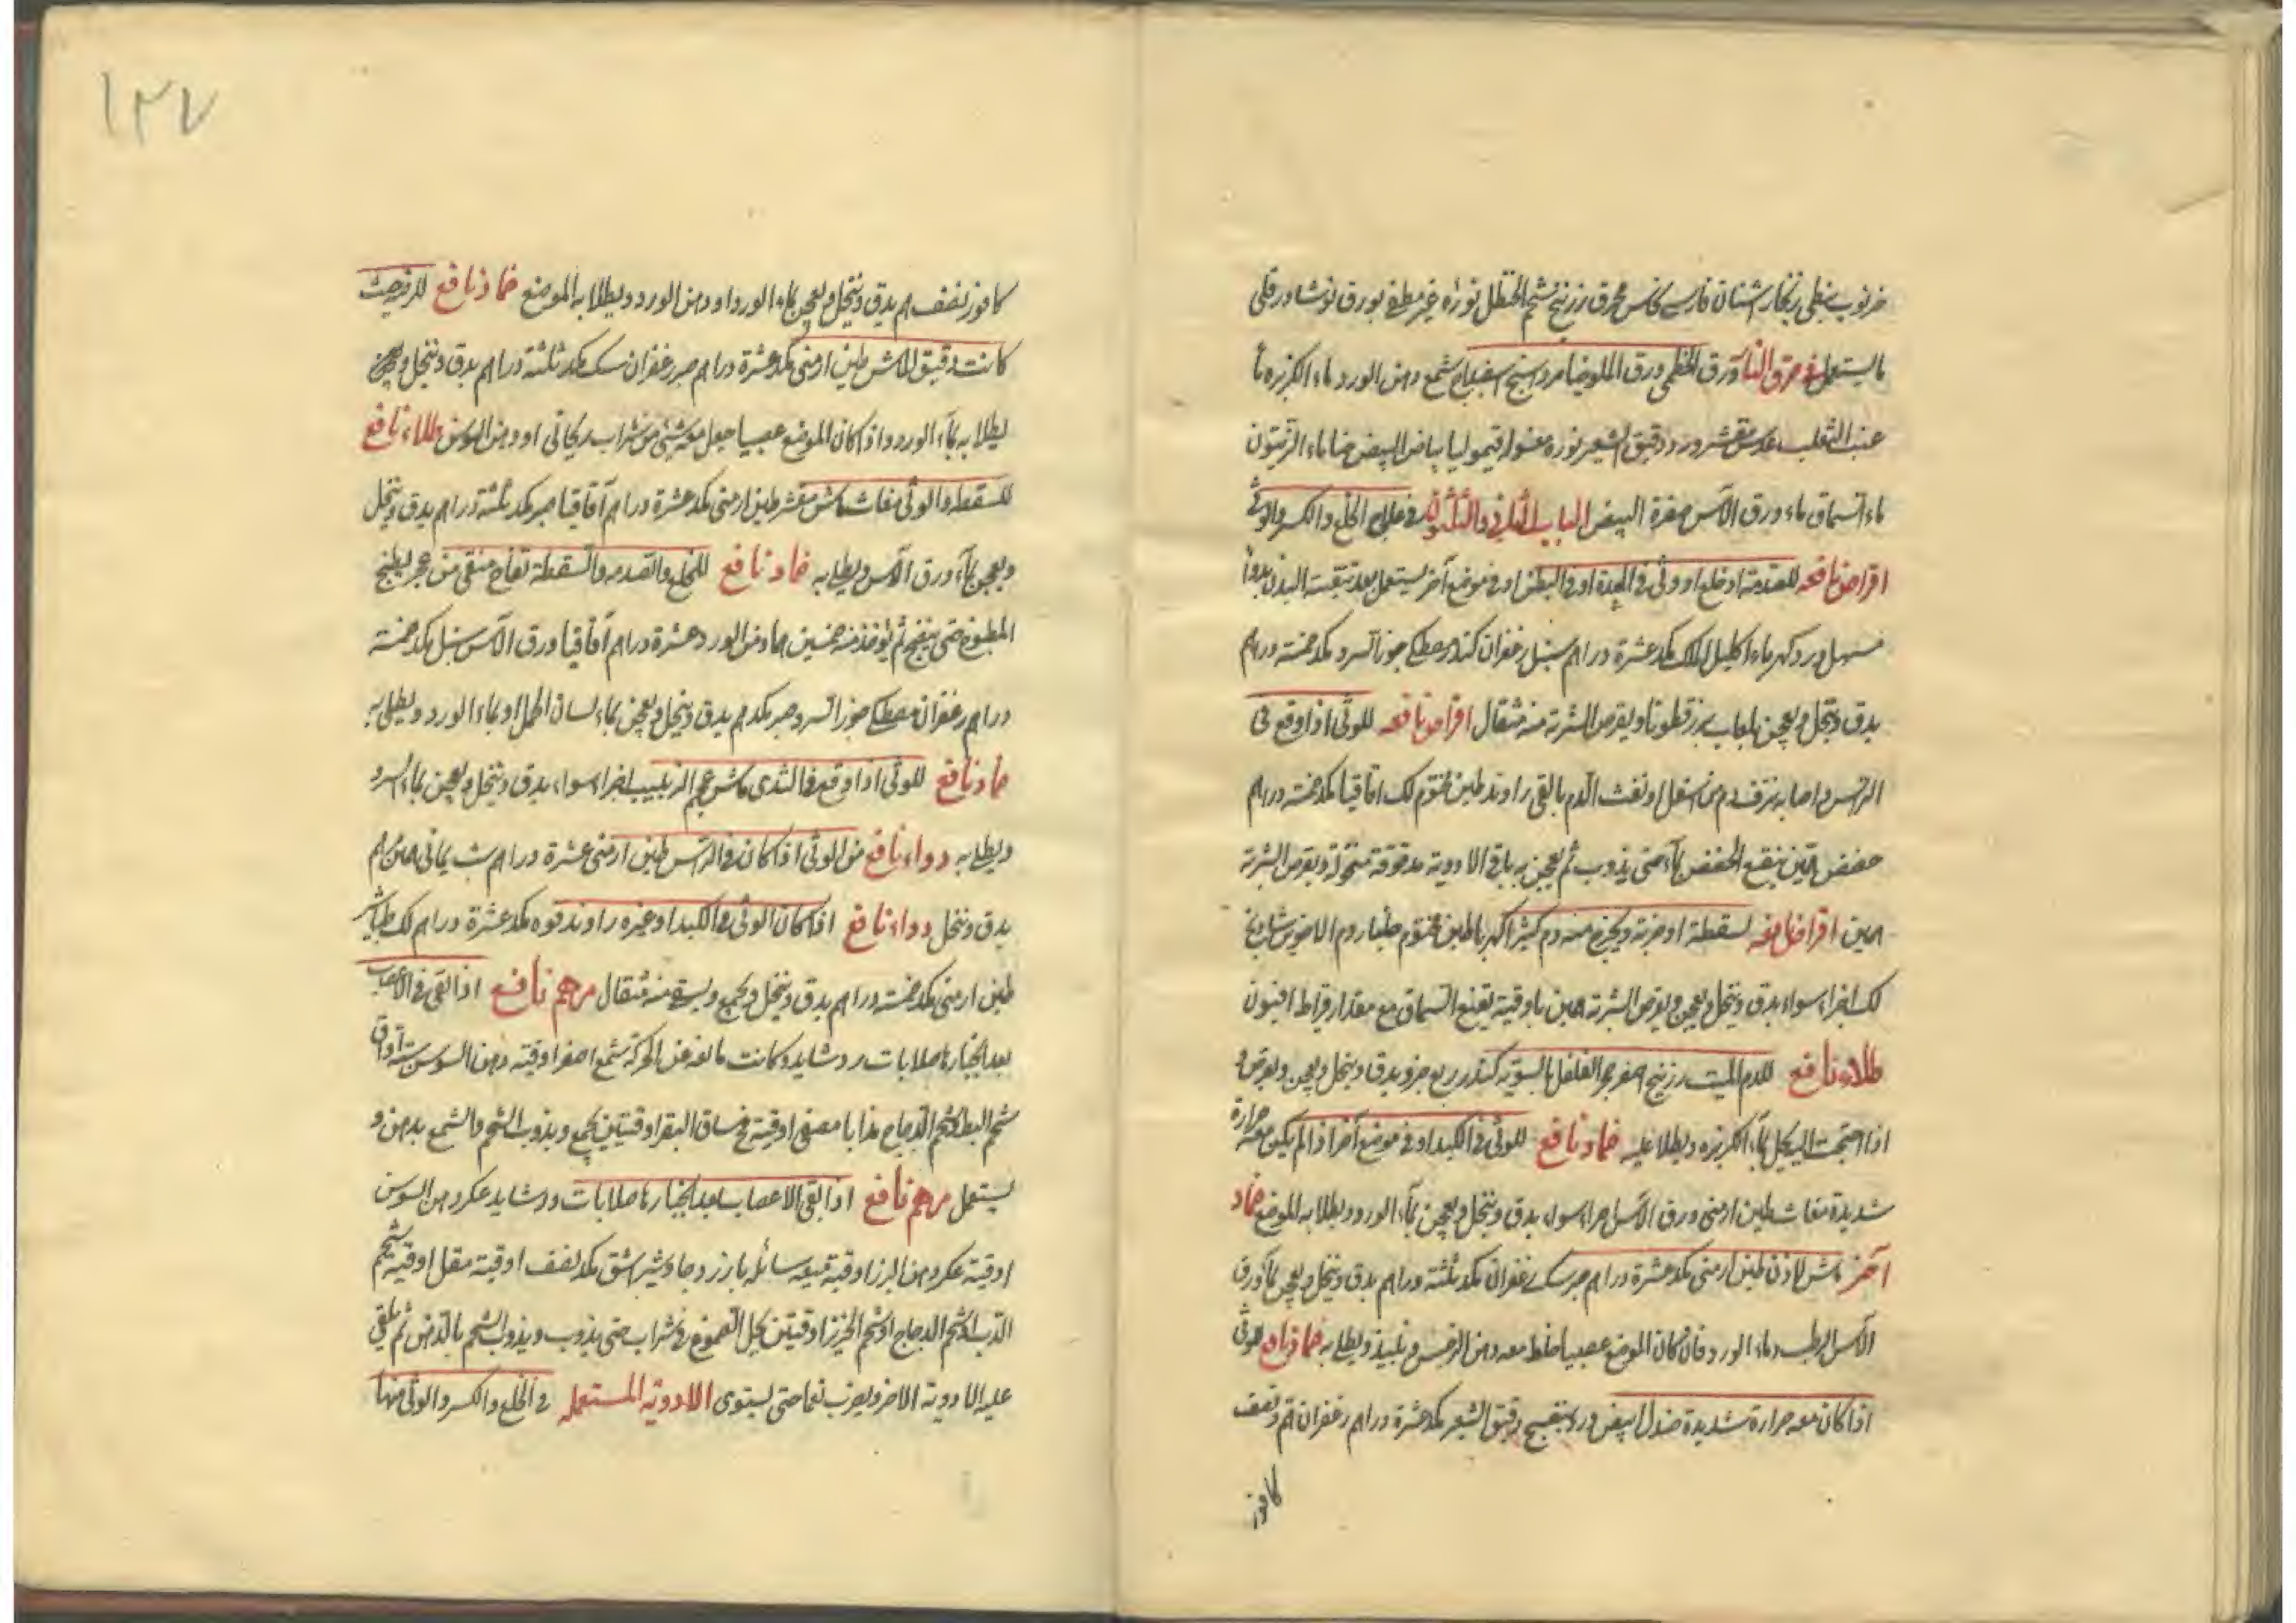 خرنوب نبطى زنجار اشنان فارسى نحاس محرق زرنيخ شحم الحنظل نوره غير مطفى بورق نوشادر قلى
ما يستعمل فى حرق النار ورق الخطمى ورق الملوخيا مرداسنج اسفيداج شمع دهن الورد ماء الكزبره ما
عنب الثعلب عدس مقشر ورد دقيق الشعير نوره مغسوله قيموليا بياض البيض حنا ماء الزيتون
ماء السماق ماء ورق الآس صفرة البيض الباب الثانى والثلثون فى علاج الخلع والكسر والوثى
اقراص نافعه للصدمة او خلع او وثى فى المعدة او فى البطن او فى موضع آخر يستعمل بعد تنقيت البدن بدواء
مسهل ورد كهرباء اكليل الملك مكد عشرة دراهم سنبل زعفران كندر مصطكى جوز السرو مكد خمسة دراهم
يدق وينخل ويعجن بلعاب بزرقطونا ويقرص الشربة منه مثقال اقراص نافعه للوثى اذا وقع فى
الراس واصابه نزف دم من اسفل او نفث الدم بالقى راوند طين مختوم لك اقاقيا مكد خمسة دراهم
حضض همين ينقع الحضض بماء حتى يذوب ثم يعجن به باقى الادوية مدقوقة منخولة ويقرص الشربة
همين اقراص نافعه لسقطة او ضربة ويخرج منه دم كثير كهربا طين مختوم جلنار دم الاخوين شاذنج
لك اجزاء سواء يدق وينخل ويعجن ويقرص الشربة همين باوقية نقيع السماق مع مقدار قيراط افيون
طلاء نافع للدم الميت زرنيخ اصفر حجر الفلفل بالسويه كندر ربع جزو يدق وينخل ويعجن ويقرص و
اذا احتجت اليه يحل بماء الكزبره ويطلا عليه ضماد نافع للوثى فى الكبد او فى موضع آخر اذا لم يكن معه حرارة
شديدة مغاث طين ارمنى ورق الآس اجزاء سواء يدق وينخل ويعجن بماء الورد ويطلا به الموضع ضماد
آخر ماش لاذن طين ارمنى مكد عشرة دراهم صبر سك زعفران مكد ثلثة دراهم يدق وينخل ويعجن بماء ورق
الآس الرطب وماء الورد فان كان الموضع عصبيا خلط معه دهن النرجس ونبيذ ويطلى به ضماد نافع للوثى
اذا كان معه حرارة شديدة صندل ابيض ورد بنفسج دقيق الشعير مكد عشرة دراهم زعفران هم ونصف
كافور
١٢٧
كافور نصف هم يدق وينخل ويعجن بماء الورد او دهن الورد ويطلا به الموضع ضماد نافع للوثى حيث
كانت دقيق الماش طين ارمنى مكد عشرة دراهم صبر زعفران سك مكد ثلثة دراهم يدق وينخل ويعجن
يطلا به بماء الورد واذا كان الموضع عصبيا جعل مع شئ من شراب ريحانى او دهن السوسن طلاء نافع
للسقطه والوثى مغاث ماش مقشر طين ارمنى مكد عشرة دراهم آقاقيا صبر مكد ثلثة دراهم يدق وينخل
ويعجن بماء ورق الآس ويطلى به ضماد نافع للخلع والصدمه والسقطة تفاح منقى من عجم يطبخ
المطبوخ حتى ينضج ثم يوخذ منه خمسين هما دهن الورد عشرة دراهم آقاقيا ورق الآس سنبل مكد خمسة
دراهم زعفران مصطكى جوز السرو صبر مكد هم يدق وينخل ويعجن بماء لسان الحمل او بماء الورد ويطلى به
ضماد نافع للوثى اذا وقع فى الثدى ماش عجم الزبيب اجزاء سواء يدق وينخل ويعجن بماء السرو
ويطلى به دواء نافع من الوثى اذا كان فى الراس طين ارمنى عشرة دراهم شب يمانى همين هم
يدق وينخل دواء نافع اذا كان الوثى فى الكبد او غيره راوند فوه مكد عشرة دراهم لك طباشير
طين ارمنى مكد خمسة دراهم يدق وينخل ويجمع ويسقى منه مثقال مرهم نافع اذا بقى فى الاعصاب
بعد انجبارها صلابات ودشايد وكانت مانعه عن الحركة شمع اصفر اوقية دهن السوسن ستة اواق
شحم البط وشحم الدجاج مذابا مصفى اوقية مخ ساق البقر اوقيتين يجمع ويذوب الشحم والشمع بدهن و
يستعمل مرهم نافع اذا بقى الاعصاب بعد انجبارها صلابات ودشايد عكر دهن السوسن
اوقية عكر دهن البزر اوقية ميعه سائله بارزد وجاوشير اشق مكد نصف اوقية مقل اوقية شحم
الدب او شحم الدجاج او شحم الخنزير اوقيتين يحل الصموغ فى شراب حتى يذوب ويذوب الشحم بالدهن ثم يلقى
عليه الادوية الاخر ويضرب نعما حتى يستوى الادوية المستعمله فى الخلع والكسر والوثى منها